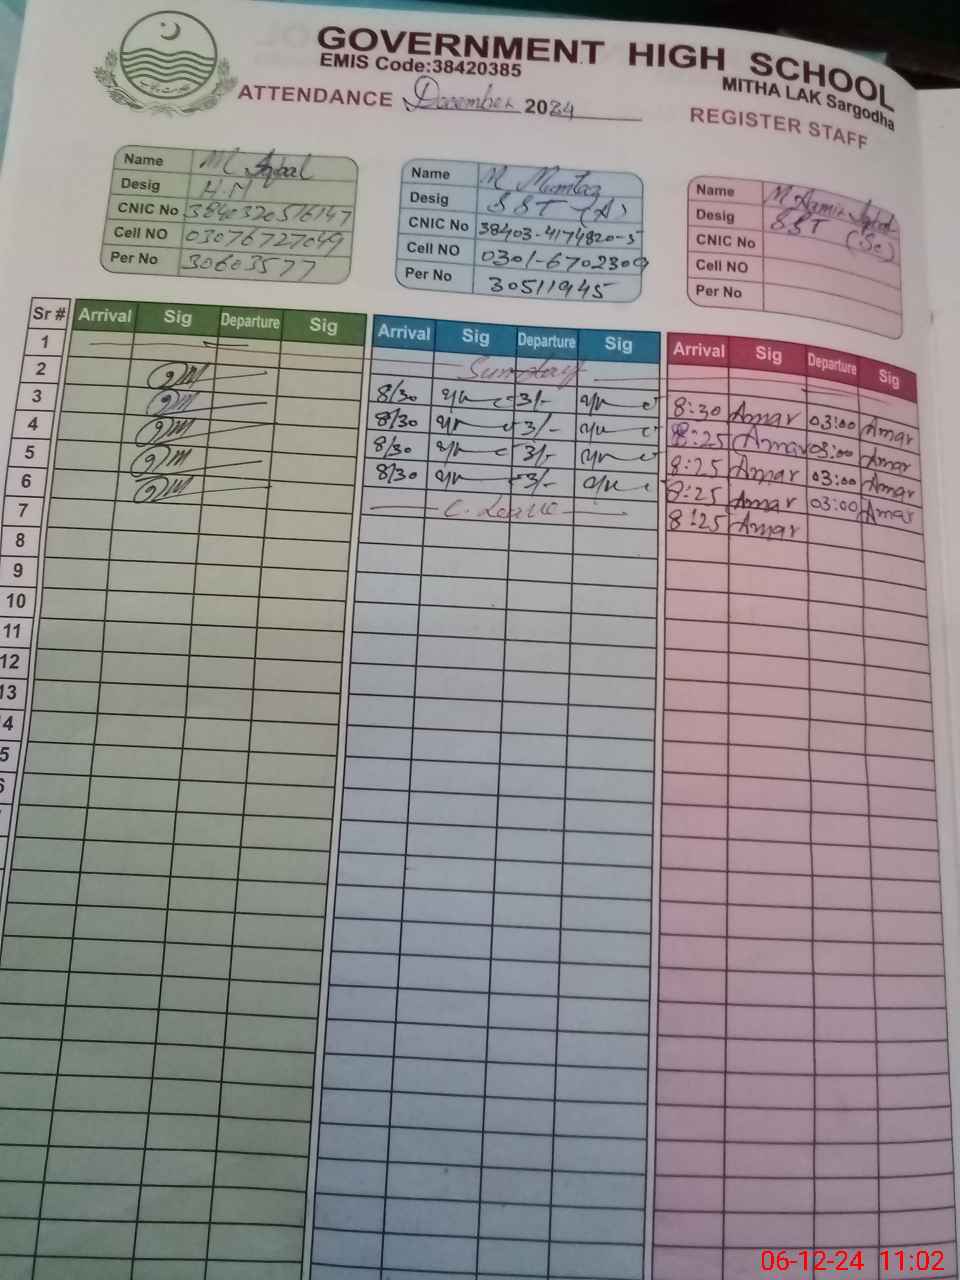 GOVERNMENT HIGH SCHOOL
EMIS Code:38420385
MITHA LAK Sargodha
ATTENDANCE December 2024
REGISTER STAFF
Name M Iqbal
Desig H.M
CNIC No 3840320516147
Cell NO 03076727049
Per No 30603577
Name M Mumtaz
Desig SST (A)
CNIC No 38403-4174820-5
Cell NO 0301-6702309
Per No 30511945
Name M Aamir Iqbal
Desig SST (Sc)
CNIC No
Cell NO
Per No
Sr # Arrival Sig Departure Sig Arrival Sig Departure Sig Arrival Sig Departure Sig
1 Sunday
2 8/30 3/- 8:30 Amar 03:00 Amar
3 8/30 3/- 8:25 Amar 03:00 Amar
4 8/30 3/- 8:25 Amar 03:00 Amar
5 8/30 3/- 8:25 Amar 03:00 Amar
6 C. Leave 8:25 Amar
7
8
9
10
11
12
13
4
5
06-12-24 11:02